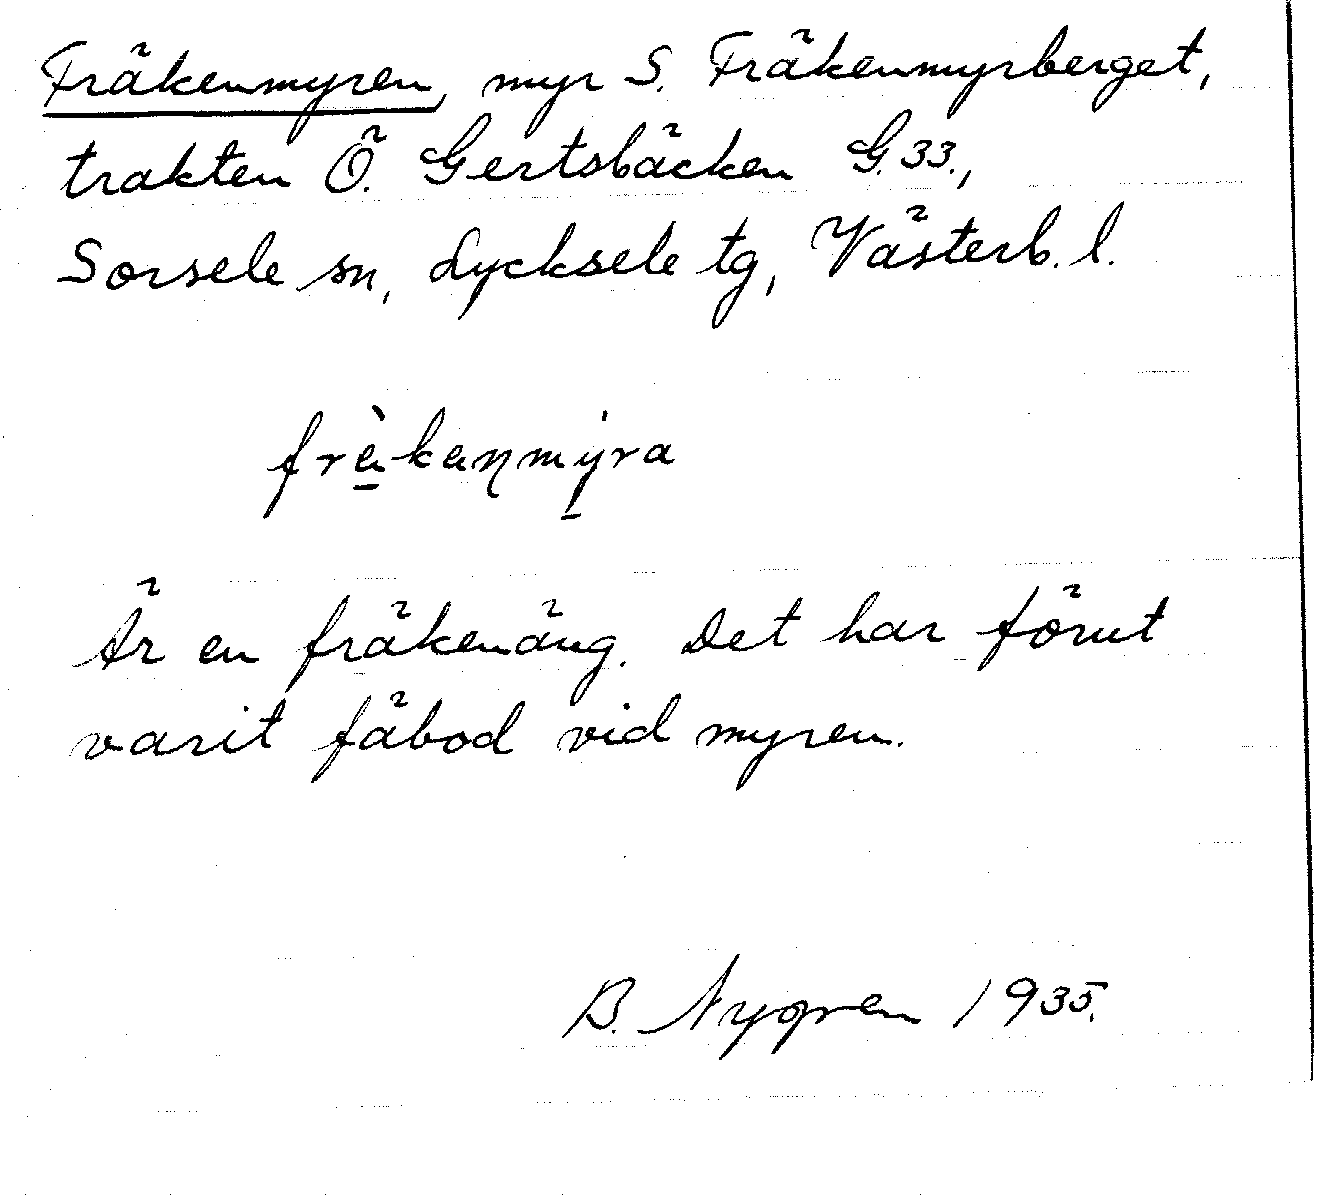 Fräkenmyren, myr S. Fräkenmyrberget,
trakten Ö. Gertsbäcken G.33.,
Sorsele sn, Lycksele tg, Västerb. l.
frè̱kenmý̱ra
Är en fräkenäng. Det har förut
varit fäbod vid myren.
B. Nygren 1935.